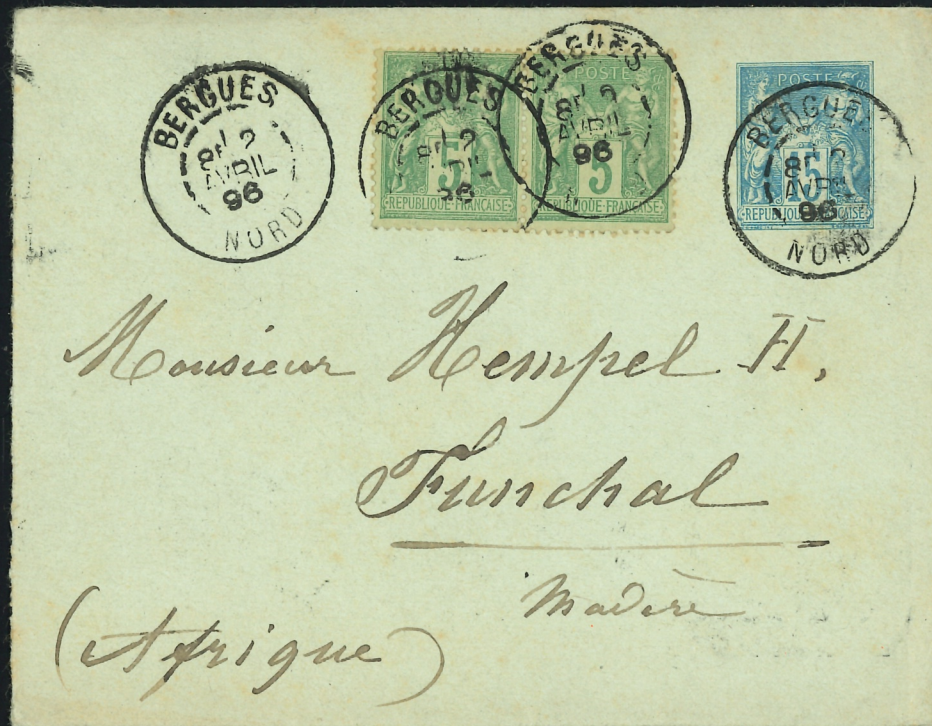 BERGUES
8E 2
AVRIL
96
NORD
BERGUES
8E 2
96
5
REPUBLIQUE FRANCAISE
BERGUES
8E 2
AVRIL
96
POSTE
5
REPUBLIQUE FRANCAISE
POSTE
BERGUES
8E 2
AVRIL
96
NORD
15
REPUBLIQUE FRANCAISE
Monsieur Hempel H,
Funchal
Madère
(Afrique)